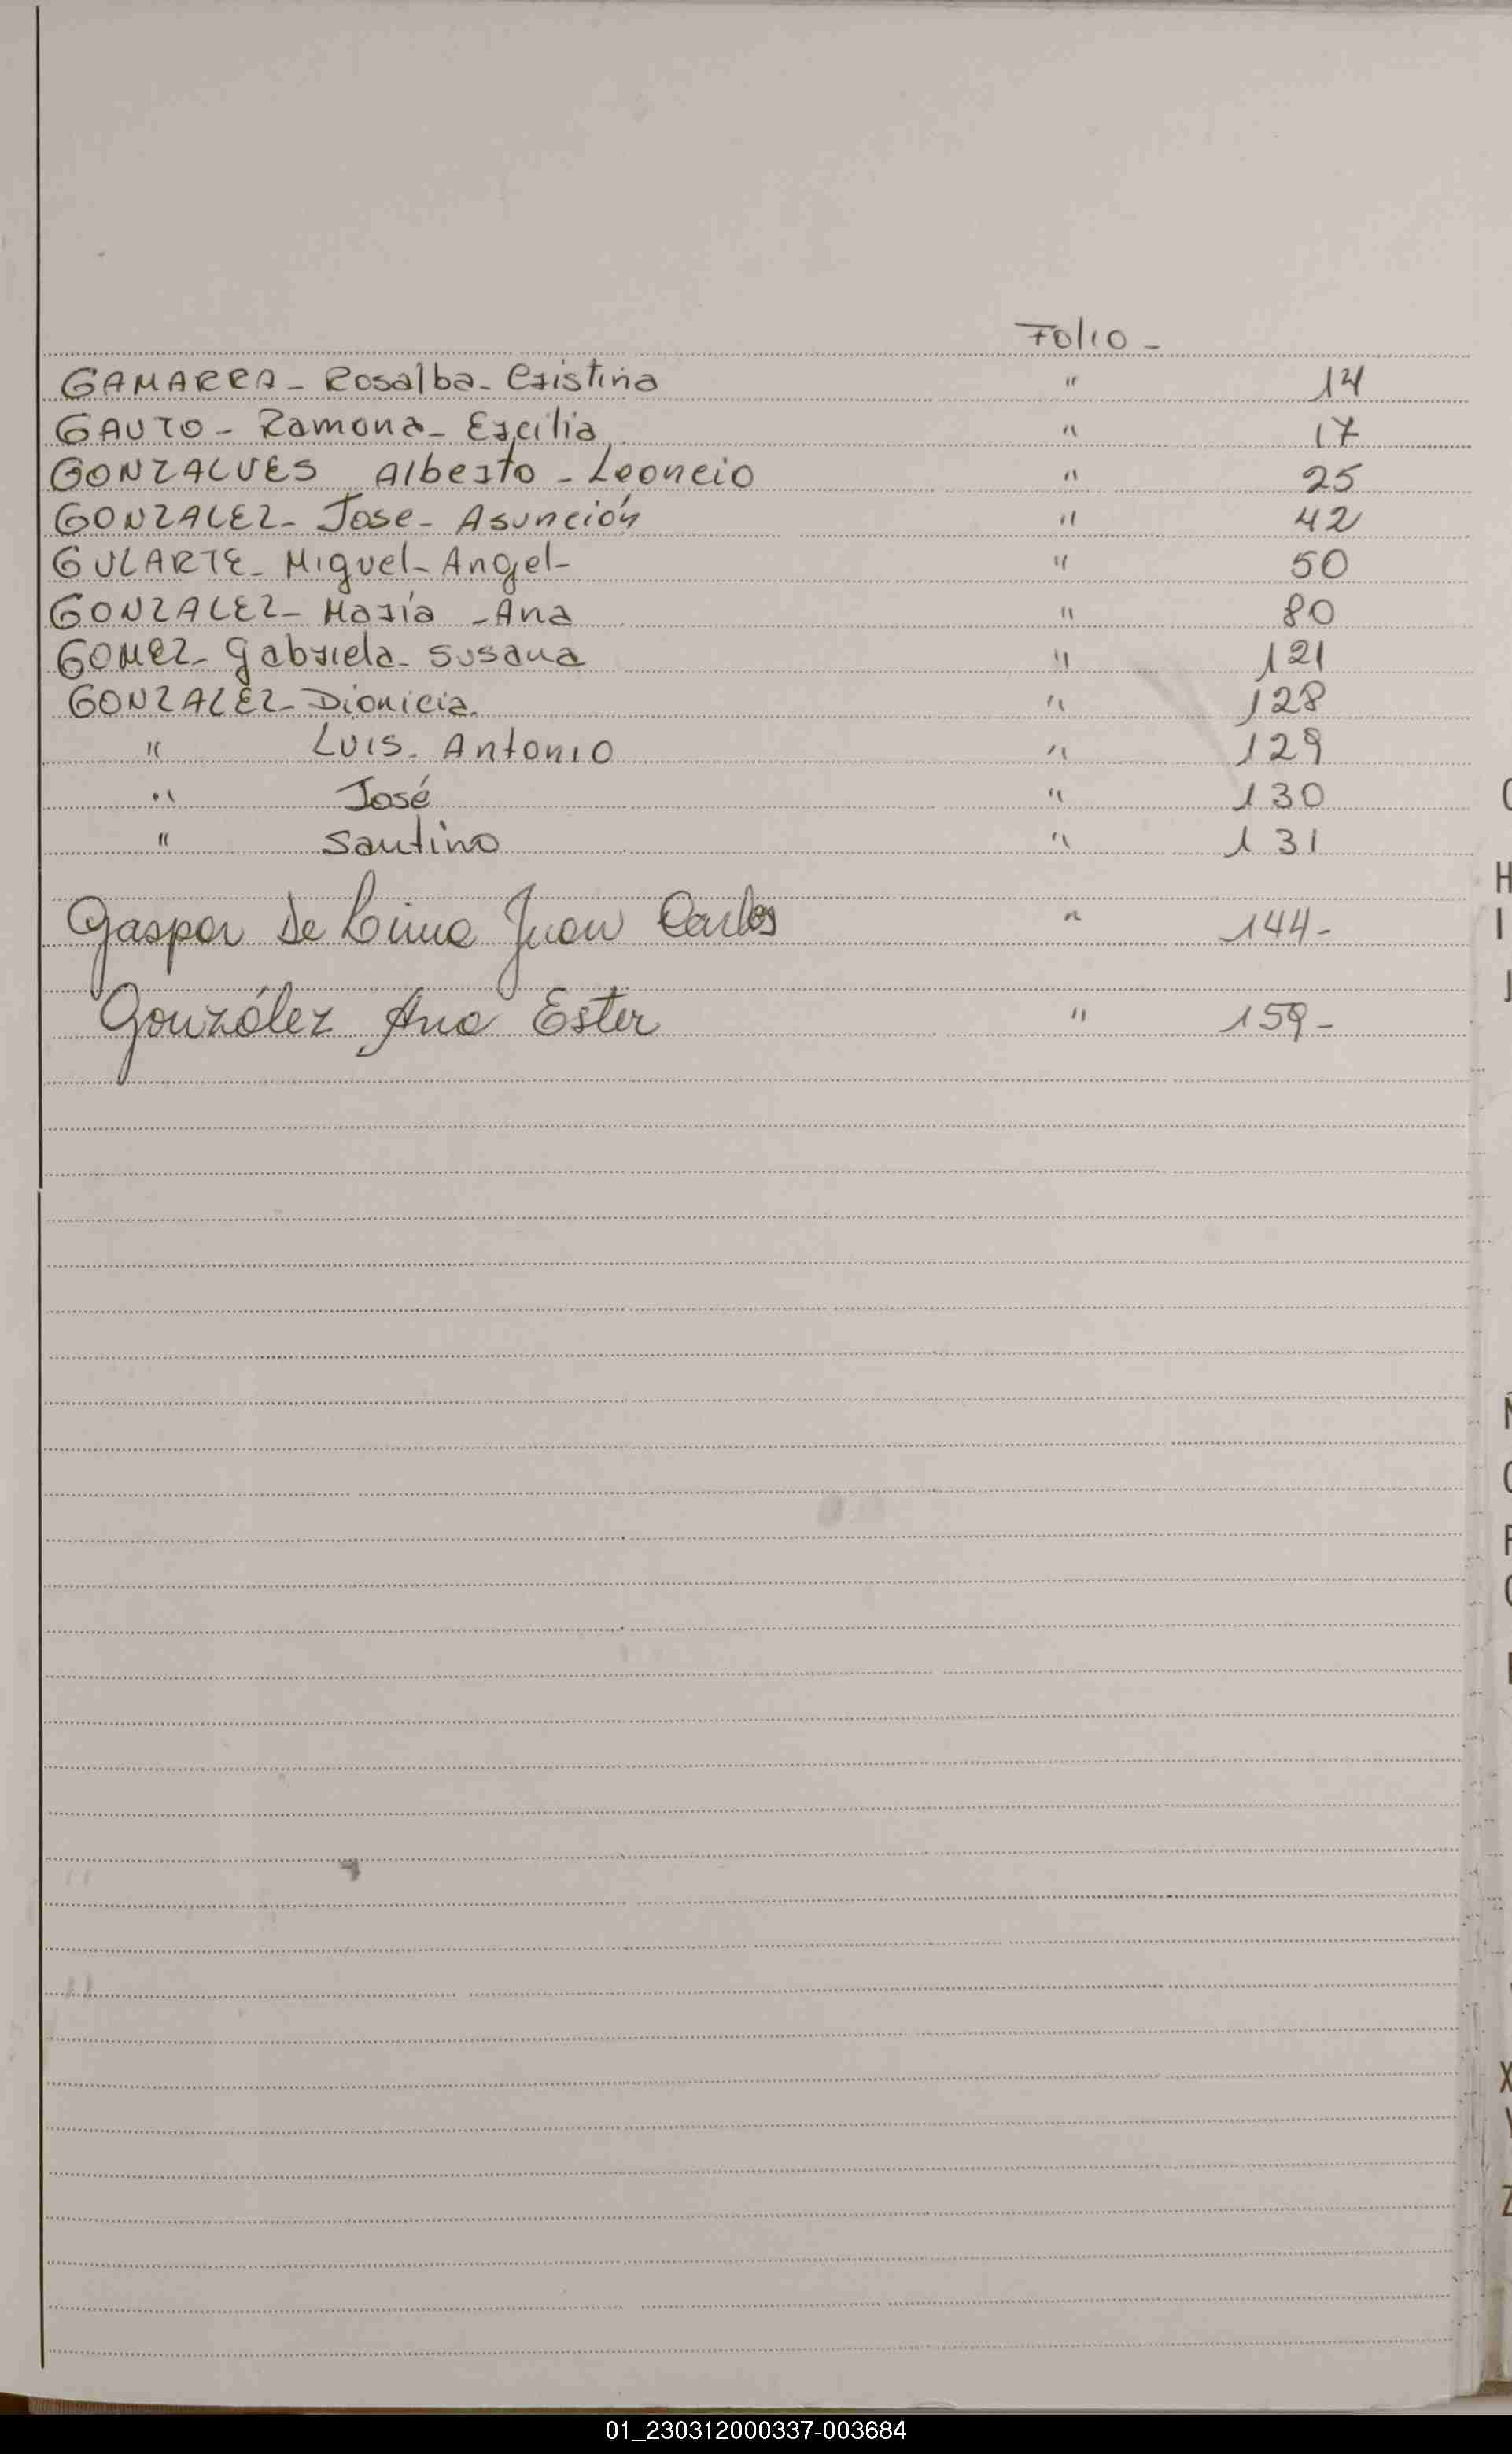 Folio -
GAMARRA - Rosalba - Cristina " 14
GAUTO - Ramona - Ercilia " 17
GONZALVES Alberto - Leoncio " 25
GONZALEZ - Jose - Asunción " 42
GULARTE - Miguel - Angel - " 50
GONZALEZ - María - Ana " 80
GOMEZ - Gabriela - Susana " 121
GONZALEZ - Dionicia. " 128
" Luis - Antonio " 129
" José " 130
" Santino " 131
Gaspar De Lima Juan Carlos " 144 -
González Ana Ester " 159 -
H
I
J
X
Z
01_230312000337-003684